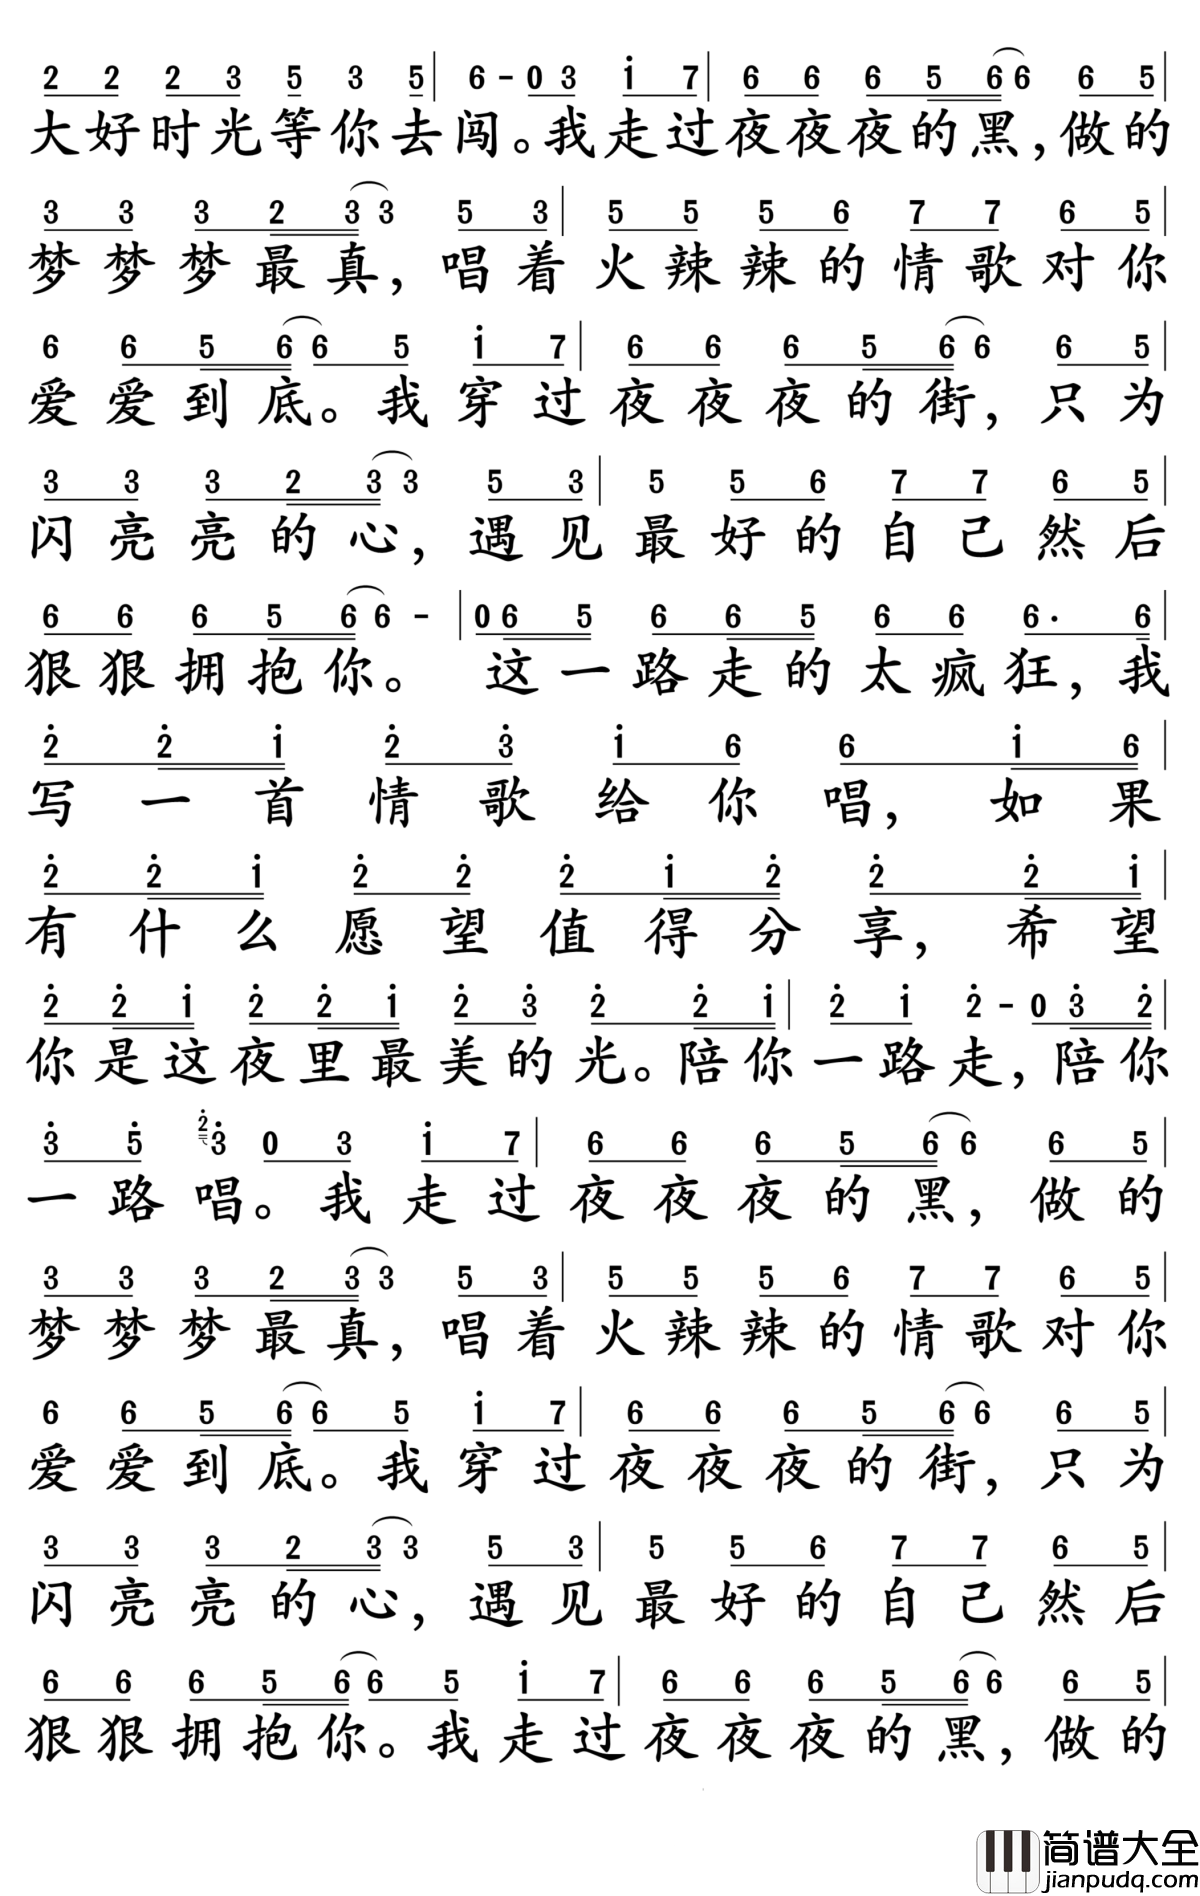 2 2 2 3 5 3 5 | 6 - 0 3 i 7 | 6 6 6 5 6 6 6 5 |
大好时光等你去闯。我走过夜夜夜的黑,做的
3 3 3 2 3 3 5 3 | 5 5 5 6 7 7 6 5 |
梦梦梦最真,唱着火辣辣的情歌对你
6 6 5 6 6 5 i 7 | 6 6 6 5 6 6 6 5 |
爱爱到底。我穿过夜夜夜的街,只为
3 3 3 2 3 3 5 3 | 5 5 6 7 7 6 5 |
闪亮亮的心,遇见最好的自己然后
6 6 6 5 6 6 - | 0 6 5 6 6 5 6 6 6· 6 |
狠狠拥抱你。这一路走的太疯狂,我
2̇ 2̇ i 2̇ 3̇ i 6 6 i 6 |
写一首情歌给你唱,如果
2̇ 2̇ i 2̇ 2̇ 2̇ i 2̇ 2̇ 2̇ i |
有什么愿望值得分享,希望
2̇ 2̇ i 2̇ 2̇ i 2̇ 3̇ 2̇ 2̇ i | 2̇ i 2̇ - 0 3̇ 2̇ |
你是这夜里最美的光。陪你一路走,陪你
3̇ 5̇ 2̇ 3̇ 0 3 i 7 | 6 6 6 5 6 6 6 5 |
一路唱。我走过夜夜夜的黑,做的
3 3 3 2 3 3 5 3 | 5 5 5 6 7 7 6 5 |
梦梦梦最真,唱着火辣辣的情歌对你
6 6 5 6 6 5 i 7 | 6 6 6 5 6 6 6 5 |
爱爱到底。我穿过夜夜夜的街,只为
3 3 3 2 3 3 5 3 | 5 5 6 7 7 6 5 |
闪亮亮的心,遇见最好的自己然后
6 6 6 5 6 6 5 i 7 | 6 6 6 5 6 6 6 5 |
狠狠拥抱你。我走过夜夜夜的黑,做的
简谱大全
jianpudq.com